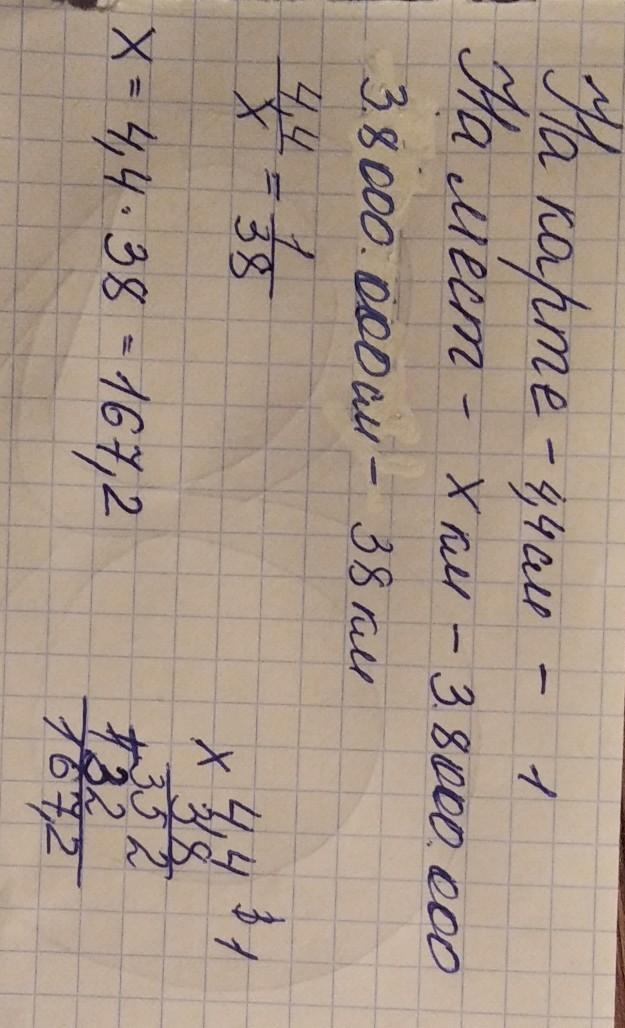 На карте - 4,4см - 1
На мест - х км - 3.8000.000
3.8000.000см - 38 км
4,4/х = 1/38
х = 4,4 · 38 = 167,2
× 4,4
3,8
352
+132
167,2